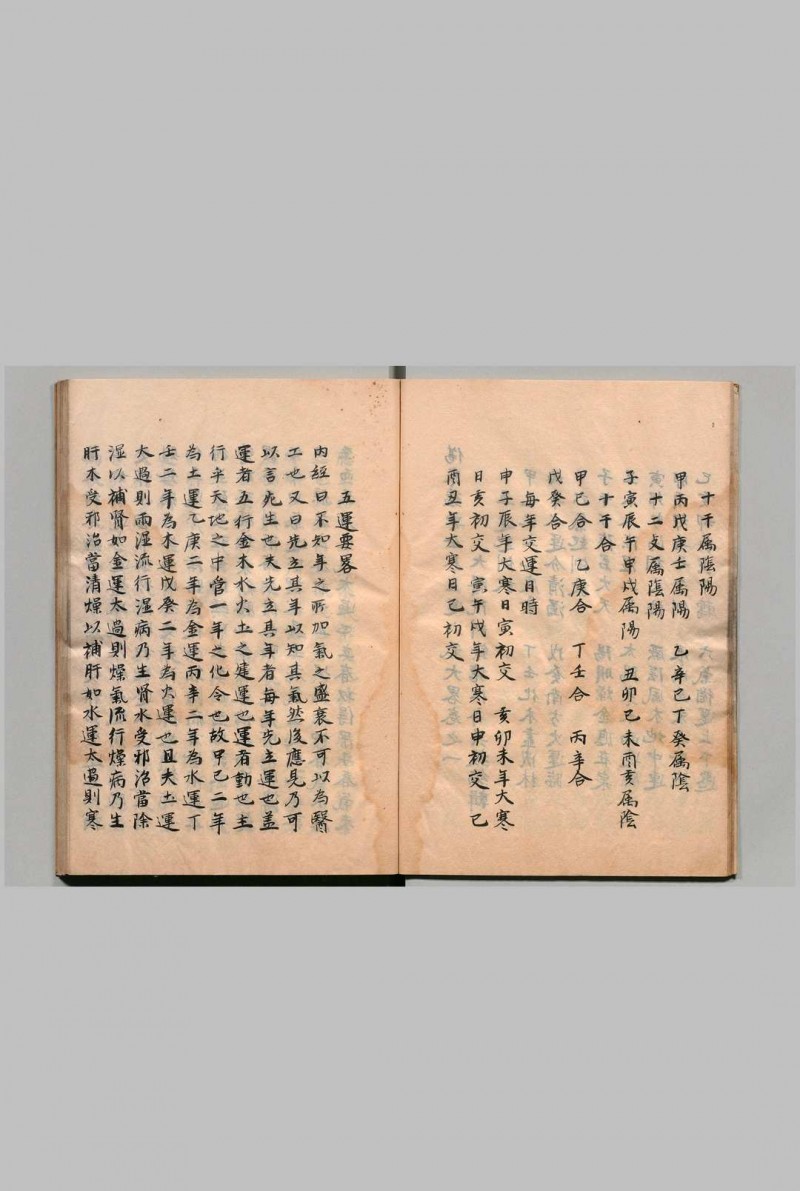 十干属陰陽
甲丙戊庚壬属陽　乙辛己丁癸属陰
十二支属陰陽
子寅辰午申戌属陽　丑卯巳未酉亥属陰
十干合
甲己合　乙庚合　丁壬合　丙辛合
戊癸合
每年交運日時
申子辰年大寒日寅初交　亥卯未年大寒
日亥初交　寅午戌年大寒日申初交　巳
酉丑年大寒日巳初交
五運要畧
内經曰不知年之所加氣之盛衰不可以為醫
工也又曰先立其年以知其氣然後應見乃可
以言死生也夫先立其年者每年先立運也盖
運者五行金木水火土之建運也運者動也主
行乎天地之中當一年之化令也故甲己二年
為土運乙庚二年為金運丙辛二年為水運丁
壬二年為木運戊癸二年為火運也且夫土運
大過則雨湿流行湿病乃生腎水受邪治當除
湿以補腎如金運太過則燥氣流行燥病乃生
肝木受邪治當清燥以補肝如水運太過則寒